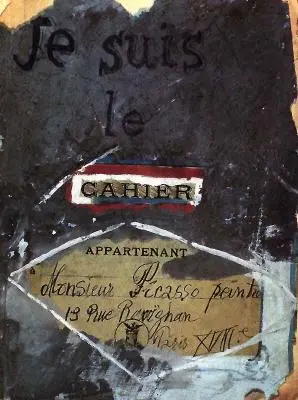 Je suis
le
CAHIER
APPARTENANT
à
Monsieur Picasso peintre
13 Rue Ravignan
Paris XVIIIe